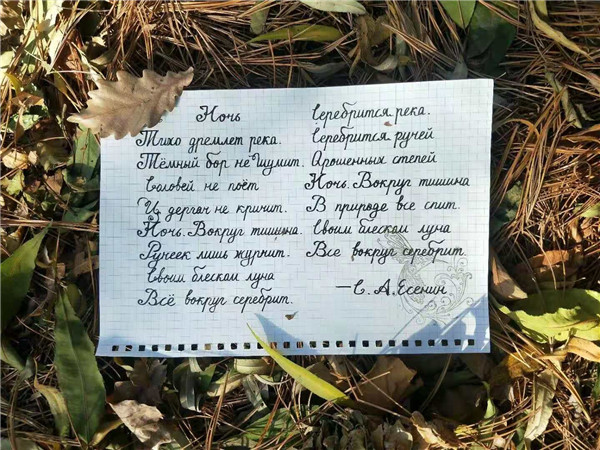 Ночь
Тихо дремлет река.
Тёмный бор не шумит.
Соловей не поёт
И дергач не кричит.
Ночь. Вокруг тишина.
Ручеек лишь журчит.
Своим блеском луна
Всё вокруг серебрит.
Серебрится река.
Серебрится ручей
Орошенных степей
Ночь. Вокруг тишина
В природе все спит.
Своим блеском луна
Все вокруг серебрит.
—С. А. Есенин